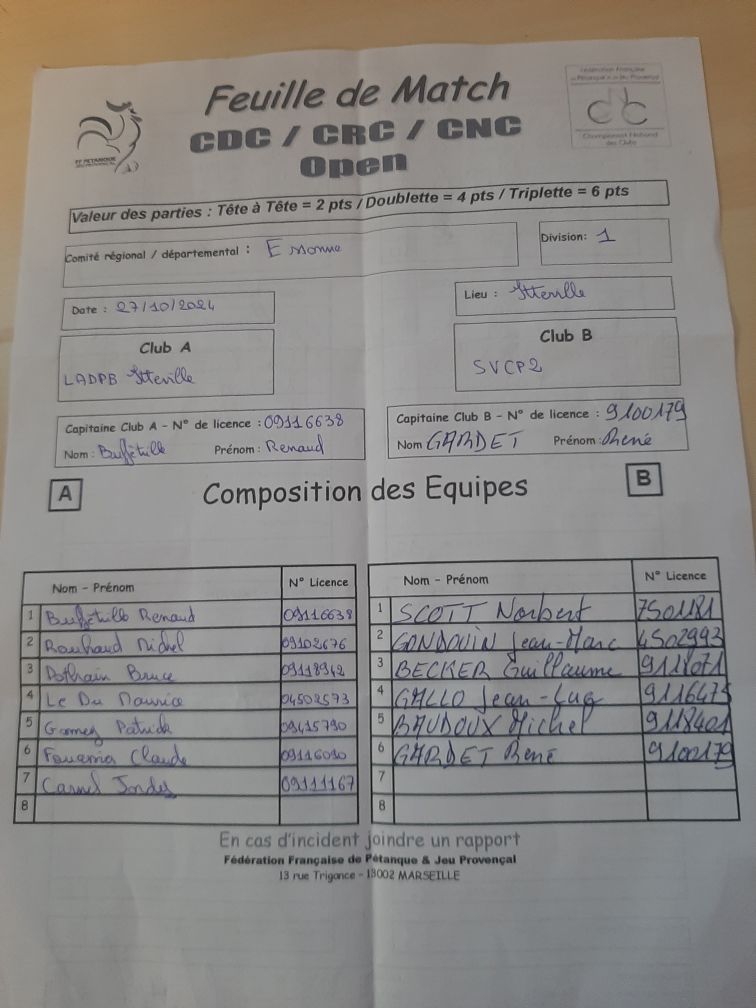 Feuille de Match
CDC / CRC / CNC
Open
FF PETANQUE
Fédération Française
de Pétanque et Jeu Provençal
Championnat National
des Clubs
Valeur des parties : Tête à Tête = 2 pts / Doublette = 4 pts / Triplette = 6 pts
Comité régional / départemental : Essonne
Division: 1
Date : 27/10/2024
Lieu : Itteville
Club A
LADPB Itteville
Club B
SVCP2
Capitaine Club A - N° de licence : 09116638
Nom : Buffetille Prénom : Renaud
Capitaine Club B - N° de licence : 9100179
Nom GARDET Prénom : René
A
Composition des Equipes
B
Nom - Prénom N° Licence
1 Buffetille Renaud 09116638
2 Michel 09102676
3 Bruce 09118942
4 Le Du Maurice 04502573
5 Gomez Patrick 09415790
6 Claude 09116090
7 09111167
8
Nom - Prénom N° Licence
1 SCOTT Norbert 7501181
2 GONDOUIN Jean-Marc 4502992
3 BECKER Guillaume 9118071
4 GALLO Jean-Luc 9116475
5 BAUDOUX Michel 9118401
6 GARDET René 9100179
7
8
En cas d'incident joindre un rapport
Fédération Française de Pétanque & Jeu Provençal
13 rue Trigance - 13002 MARSEILLE